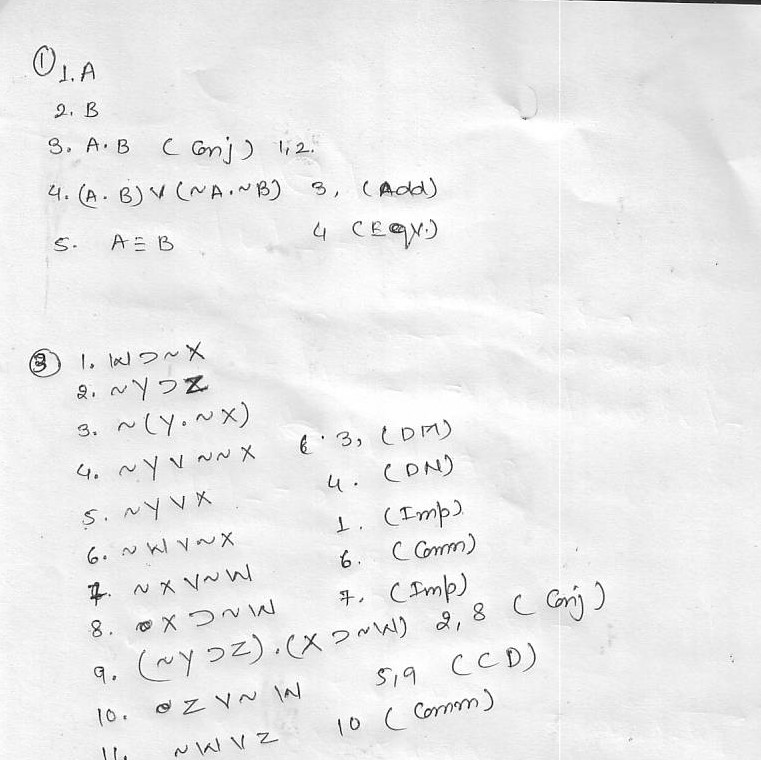 ① 1. A
2. B
3. A · B (Conj) 1,2.
4. (A · B) ∨ (~A · ~B) 3, (Add)
5. A ≡ B 4 (Eqv.)
③ 1. W ⊃ ~X
2. ~Y ⊃ Z
3. ~(Y · ~X)
4. ~Y ∨ ~~X 3, (DM)
5. ~Y ∨ X 4. (DN)
6. ~W ∨ ~X 1. (Imp)
7. ~X ∨ ~W 6. (Comm)
8. X ⊃ ~W 7. (Imp)
9. (~Y ⊃ Z) · (X ⊃ ~W) 2,8 (Conj)
10. Z ∨ ~W 5,9 (CD)
11. ~W ∨ Z 10 (Comm)